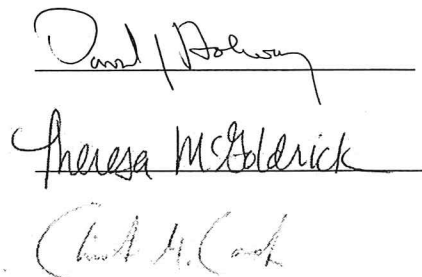 David J Holway
Theresa McGoldrick
M.